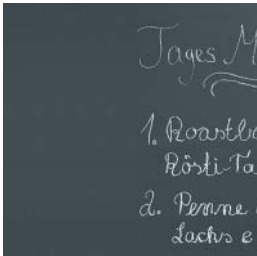 Tages M
1. Roastb
Rösti-Ta
2. Penne
Lachs e